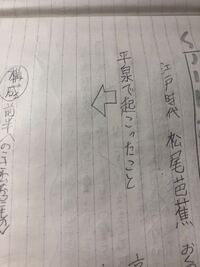 江戸時代 松尾芭蕉 おく
平泉で起こったこと
構成 前半